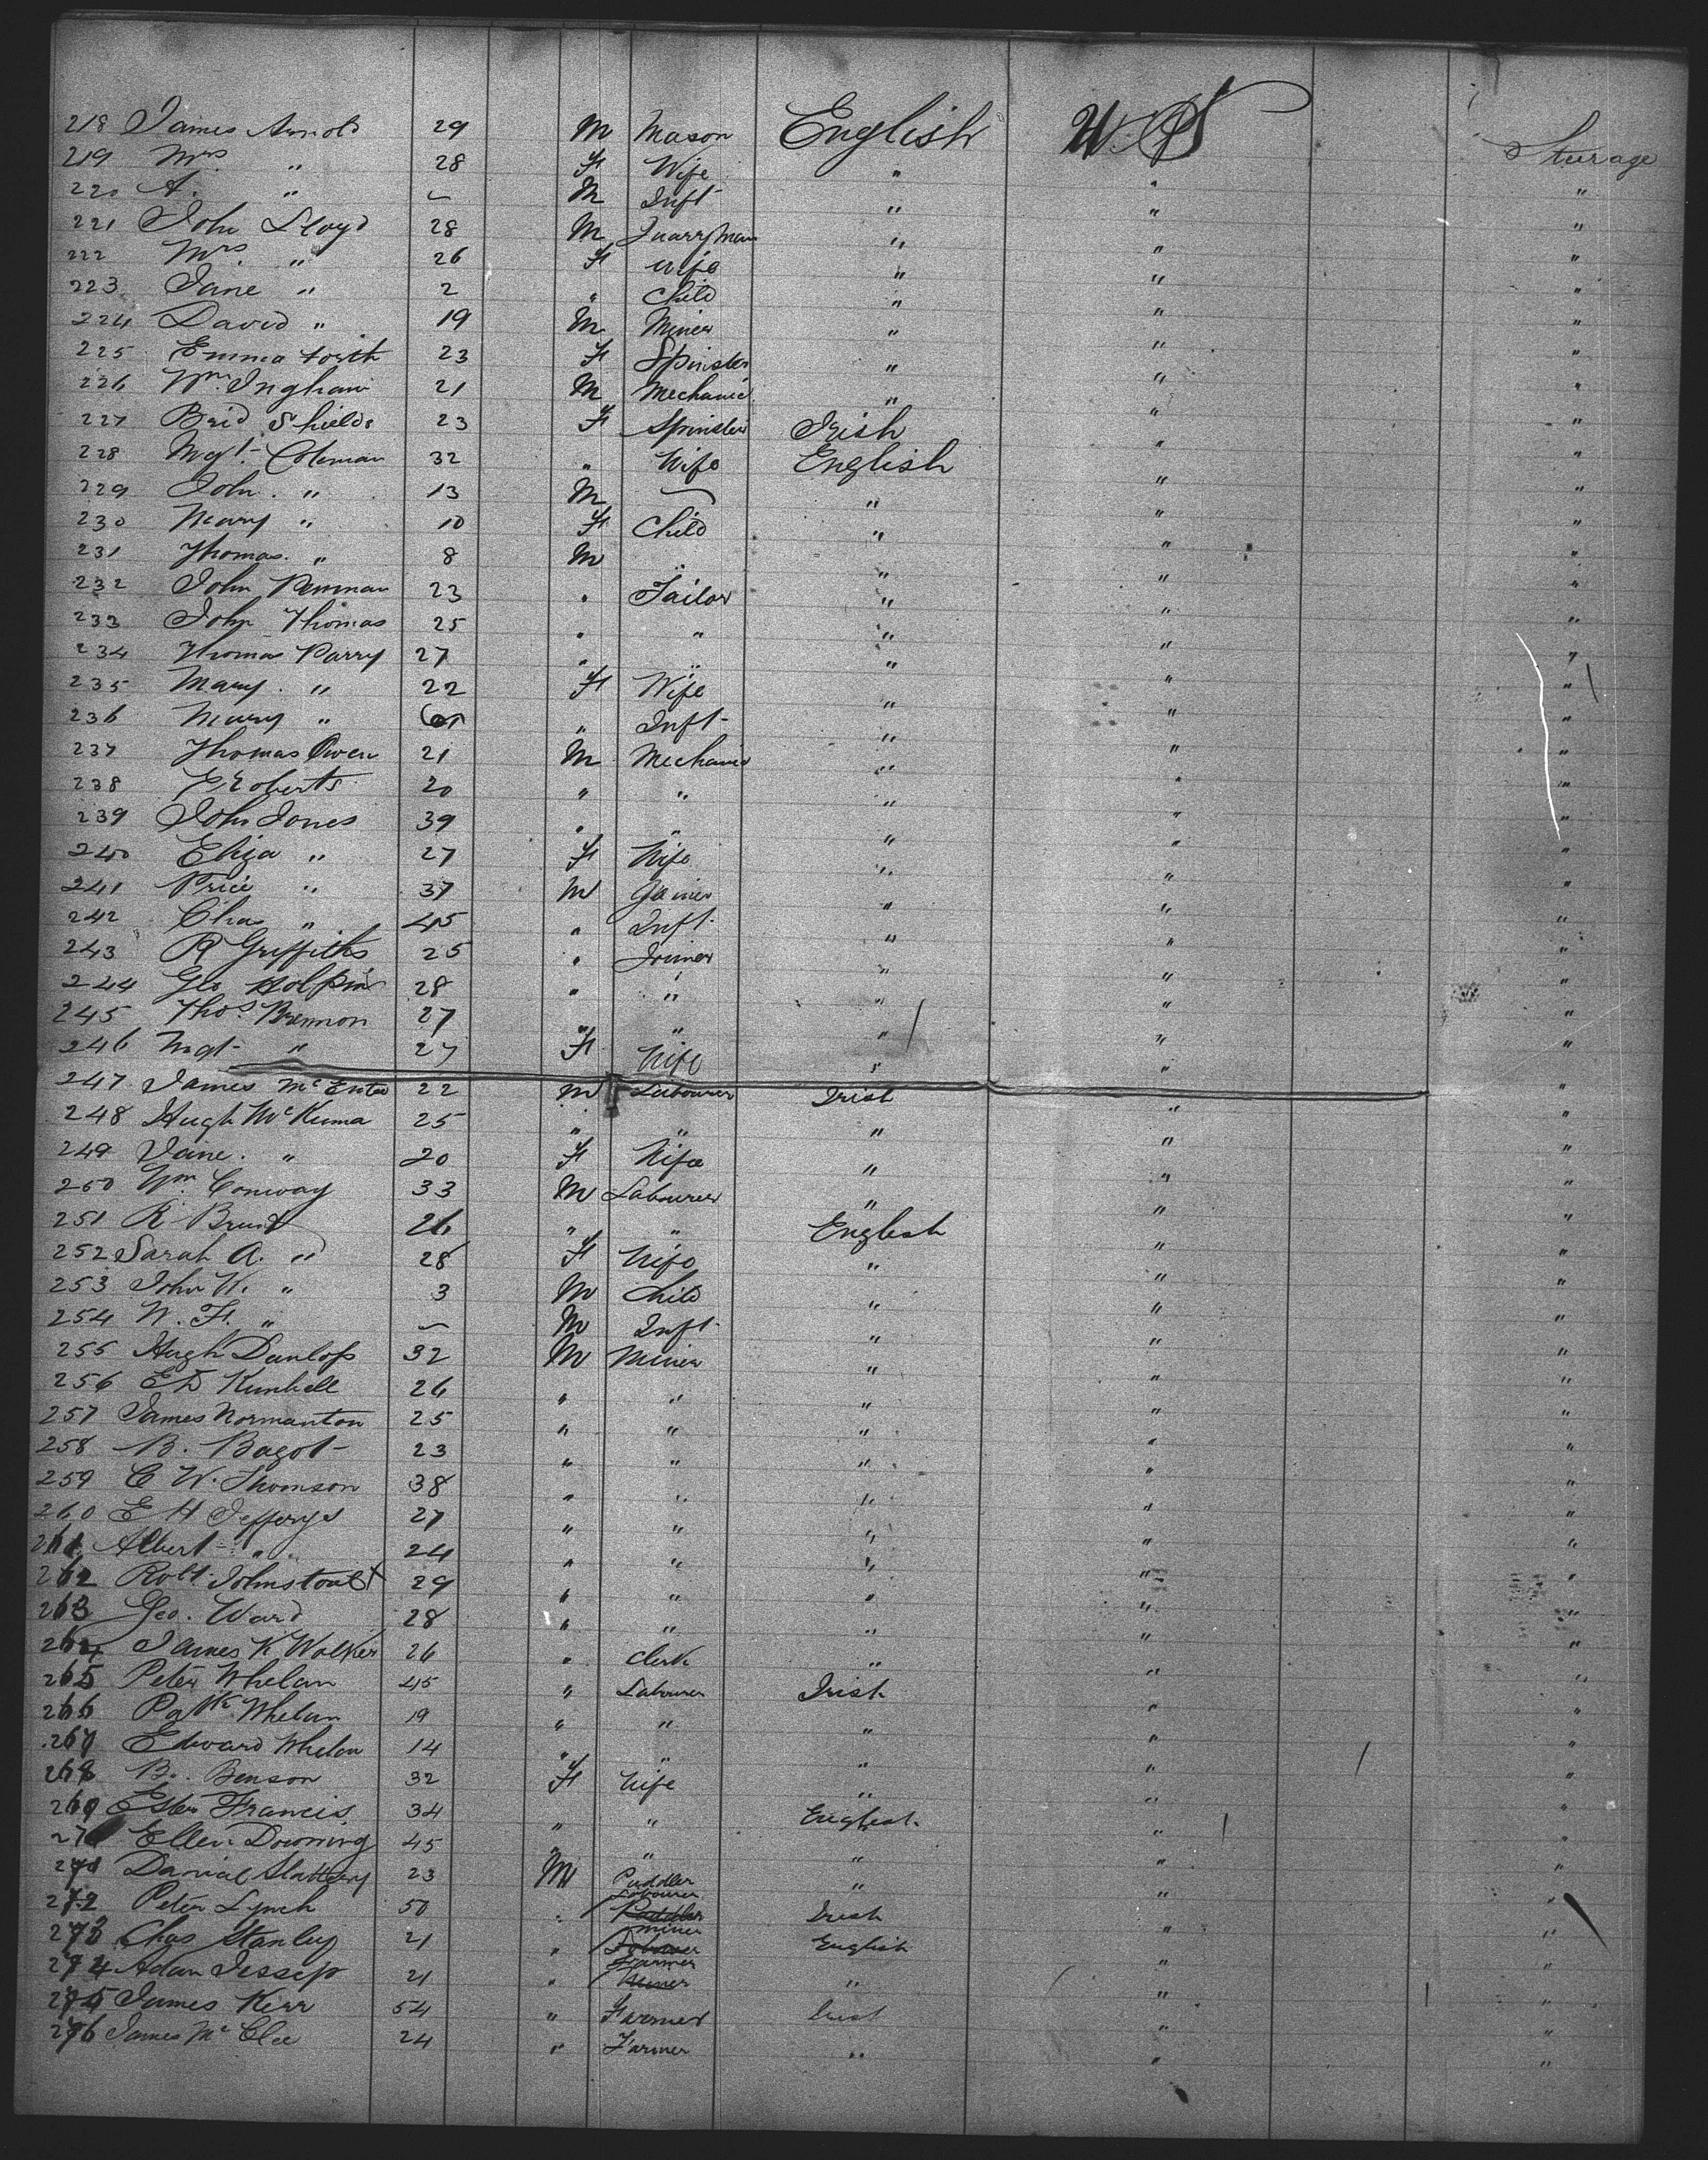 218 James Arnold 29 M Mason English U.S Steerage
219 Mrs " 28 F Wife " " "
220 A. " ~ M Inft " " "
221 John Lloyd 28 M Quarryman " " "
222 Mrs. " 26 F Wife " " "
223 Jane " 2 " Child " " "
224 David " 19 M Miner " " "
225 Emma 23 F Spinster " " "
226 Wm. Ingham 21 M Mechanic " " "
227 Brid Shields 23 F Spinster Irish " "
228 Mgt. Coleman 32 " Wife English " "
229 John " 13 M ~ " " "
230 Mary " 10 F Child " " "
231 Thomas " 8 M " " " "
232 John Penman 23 " Tailor " " "
233 John Thomas 25 " " " " "
234 Thomas Parry 27 " " " " "
235 Mary " 22 F Wife " " "
236 Mary " " Inft " " "
237 Thomas Owen 21 M Mechanic " " "
238 E Roberts 20 " " " " "
239 John Jones 39 " " " " "
240 Eliza " 27 F Wife " " "
241 Price " 37 M Joiner " " "
242 Chas " 45 " Inft " " "
243 R Griffiths 25 " Joiner " " "
244 Geo Holpin 28 " " " " "
245 Thos. Brennon 27 " " " " "
246 Mgt " 27 F Wife " " "
247 James McEntee 22 M Labourer Irish " "
248 Hugh McKenna 25 " " " " "
249 Jane " 20 F Wife " " "
250 Wm. Conway 33 M Labourer " " "
251 R Brunt 26 " " English " "
252 Sarah A. " 28 F Wife " " "
253 John K. " 3 M Child " " "
254 W. F. " ~ M Inft " " "
255 Hugh Dunlop 32 M Miner " " "
256 Ed Kimbell 26 " " " " "
257 James Normanton 25 " " " " "
258 B. Bagot 23 " " " " "
259 C W. Thomson 38 " " " " "
260 E H Jefferys 27 " " " " "
261 Albert " 24 " " " " "
262 Robt. 29 " " " " "
263 Geo. Ward 28 " " " " "
264 James K Walker 26 " Clerk " " "
265 Peter Whelan 45 " Labourer Irish " "
266 Patk. Whelan 19 " " " " "
267 Edward Whelan 14 " " " " "
268 B. Benson 32 F Wife " " "
269 Ester Francis 34 " " English " "
270 Ellen Downing 45 " " " " "
271 Danial Slattery 23 M Puddler " " "
272 Peter Lynch 50 " Labourer Puddler Irish " "
273 Chas Stanley 21 " Miner Labourer English " "
274 Adam Jessop 21 " Farmer Miner " " "
275 James Kerr 54 " Farmer Irish " "
276 James McClee 24 " Farmer " " "